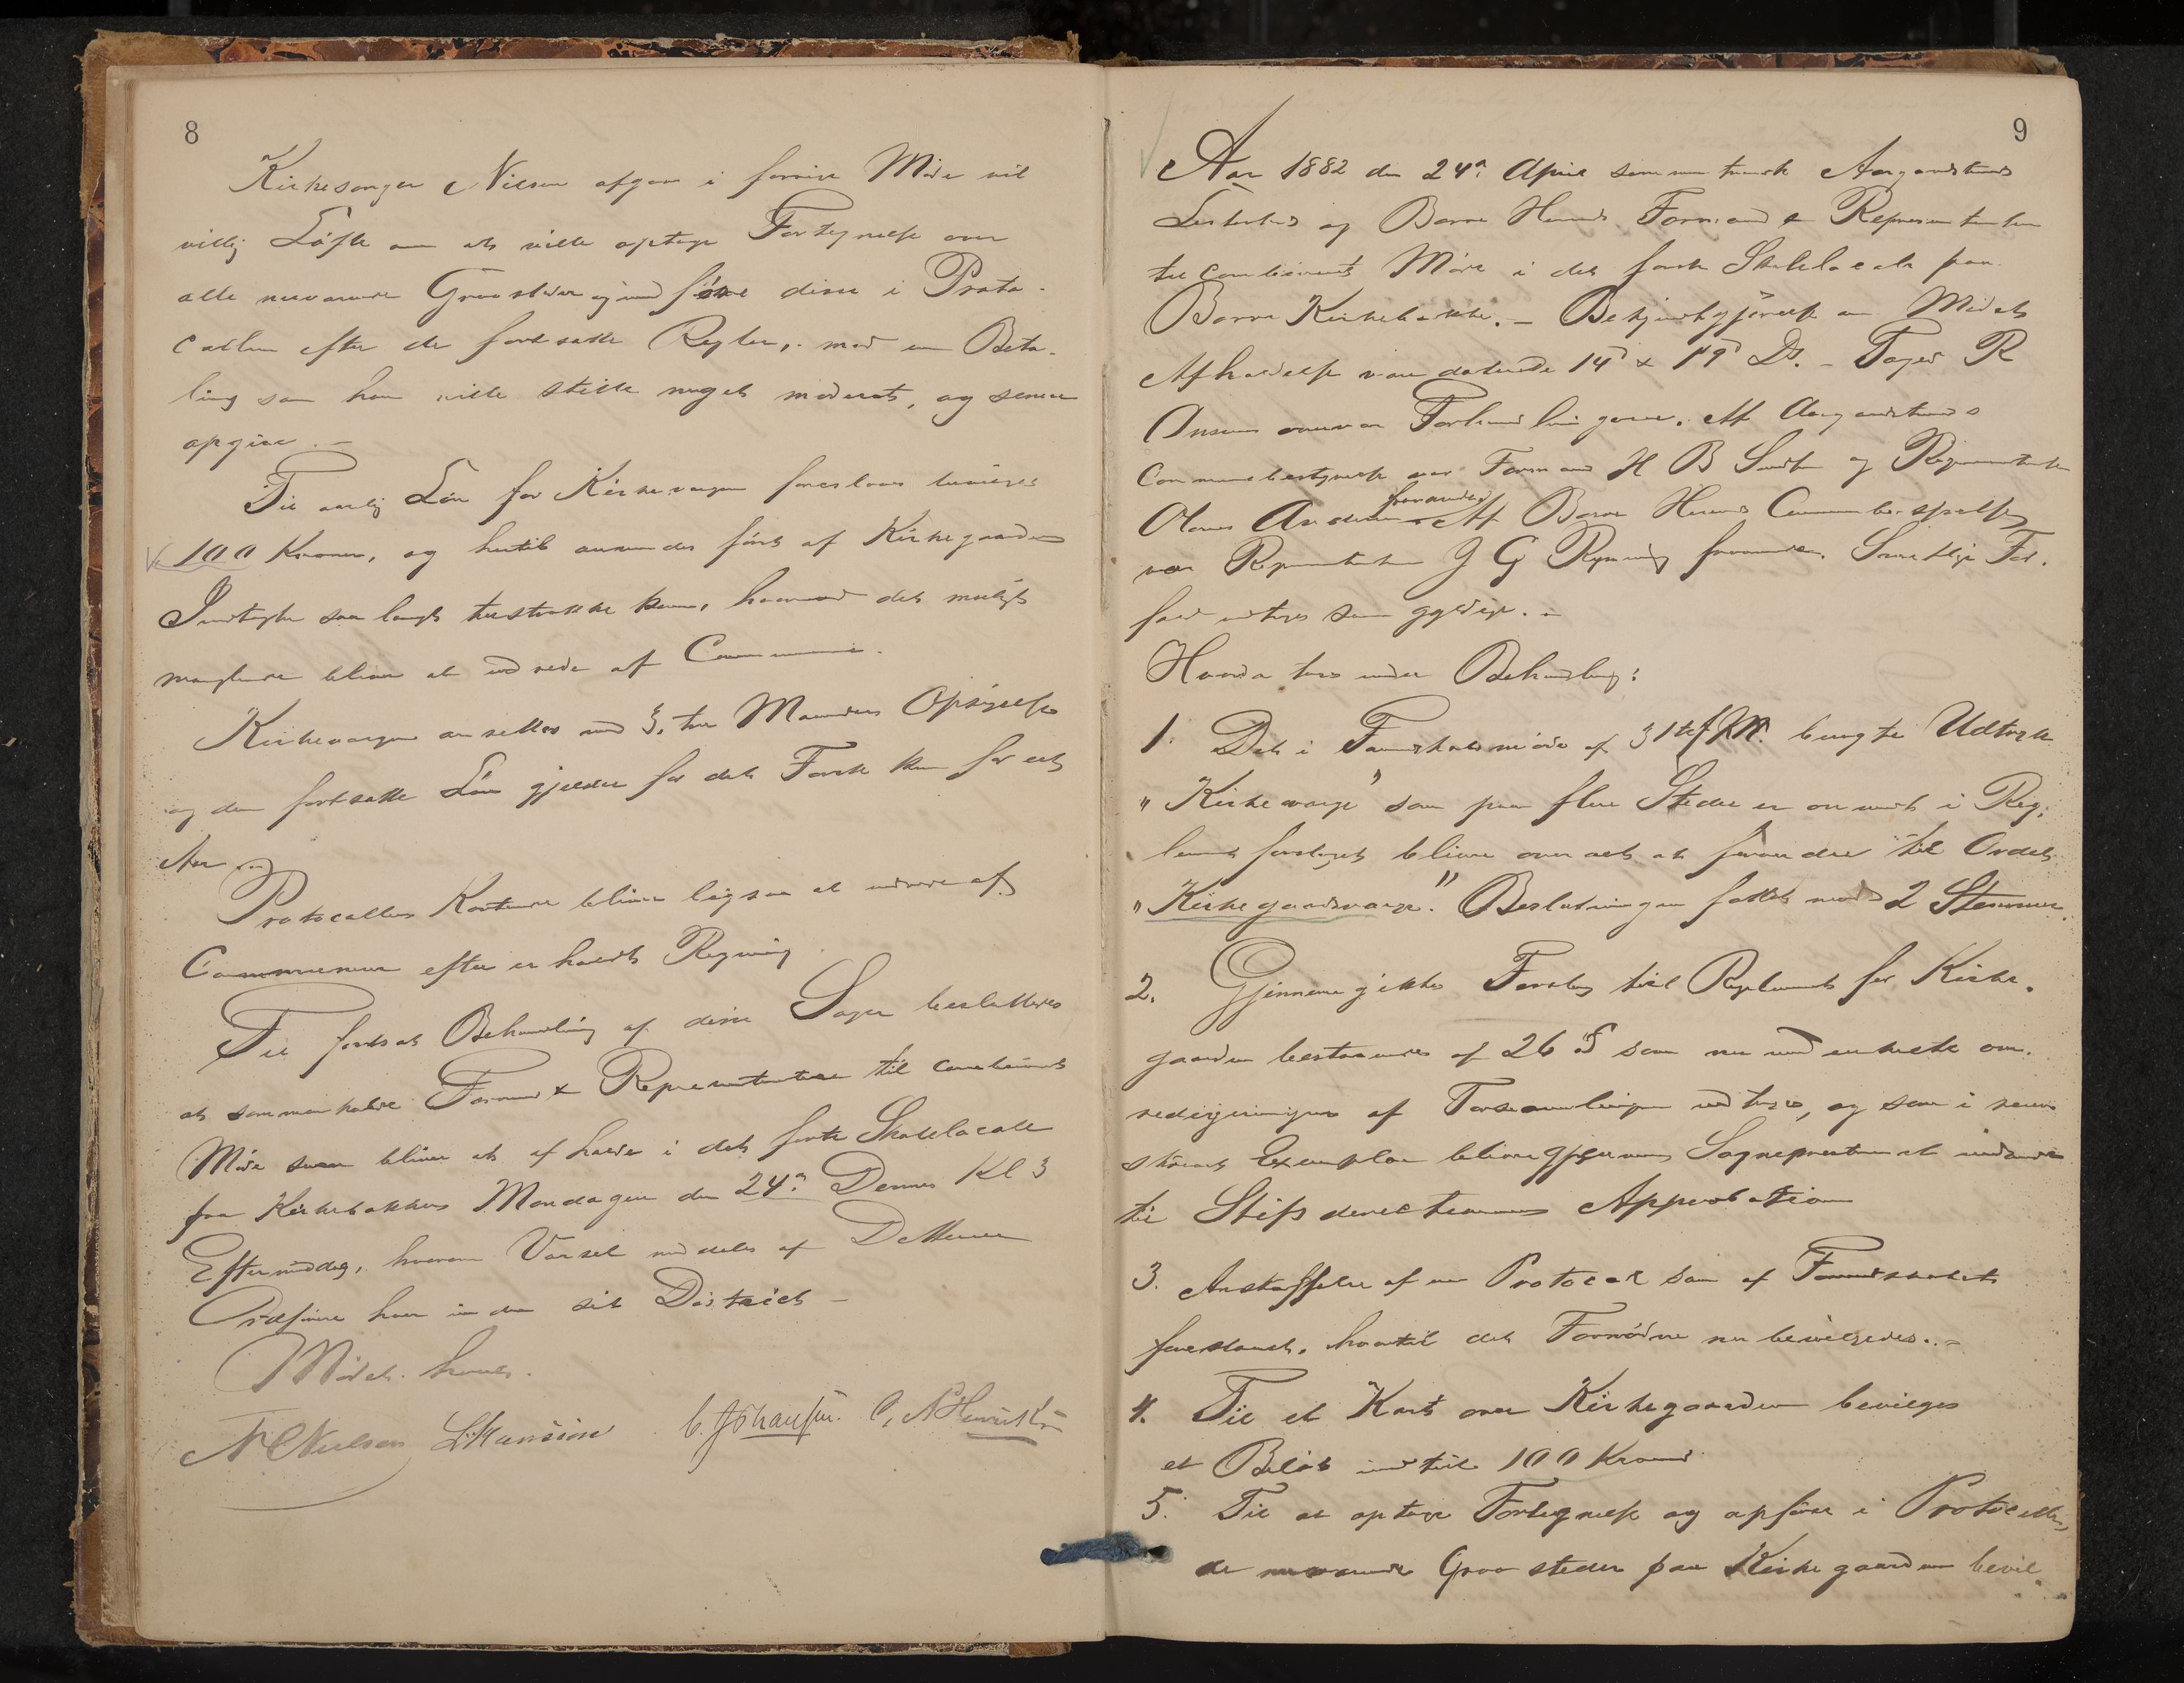 8
Kirkesanger Nilsen afgav i forrige Møde vil
villig Löfte om at ville optage Fortegnelse over
alle nuværende Gravsteder og indføre disse i Proto-
collen efter de fortsatte Regler, mod en Beta-
ling som han vilde stille meget moderat, og senere
opgive. –
Til aarlig Løn for Kirkeværgen foreslaaes bevilges
100 Kroner, og hertil anvendes först af Kirkegaardens
Indtægter saa langt tilstrække kan, hvorimod det muligt
manglende bliver at udrede af Communen.
Kirkeværgen ansettes med 3, tre Maaneders Opsigelse
og den fortsatte Løn gjelder for det Første kun for et
Aar
Protocollens Kostende bliver ligsaa at udrede af
Communen efter erholdt Regning
Til fortsat Behandling af disse Sager besluttedes
at sammenkalde Formænd & Representanter til combineret
Møde som bliver at afholde i det faste Skolelocale
paa Kirkebakken Mandagen den 24de Dennes Kl 3
Eftermiddag, hvorom Varsel meddeles af
Ordførere hver inden sit District –
Mödet hævet.
N C Nielsen L. Hansson C. Johansen. O, A Henriksen
9
Aar 1882 den 24de April sammentraadte Aasgaardstrands
Ladesteds og Borre Herreds Formænd & Representanter
til combineret Möde i det faste Skolelocale paa
Borre Kirkebakke. – Bekjendtgjørelse om Mödets
Afholdelse var dateret 14d & 19d Ds. – Foged R
Ansum overvar Forhandlingerne. Af Aasgaardstrands
Communebestyrelse var Formand H B Smith og Representanten
Olaus Andersen fraværende. Af Borre Herreds Communebestyrelse
var Representanten J G Rynning fraværende. Samtlige For-
fald antages som gyldige. –
Hvorda toges under Behandling:
1. Det i Formandskabsmöde af 31te f. M. brugte Udtryk
"Kirkeværge" som paa flere Steder er anvendt i Reg-
lementsforslaget bliver overalt at forandre til Ordet
"Kirkegaardsværge." Beslutningen fattet mod 2 Stemmer.
2. Gjennemgikkes Forslag til Reglement for Kirke-
gaarden bestaaende af 26 § som nu med enkelte om-
redigeringer af Forsamlingen vedtoges, og som i renn
skrevet Exemplar bliver gjennem Sogneprestembedet indsendt
til Stiftsdirectionens Approbation
3. Anskaffelse af en Protocol som af Formandskabet
foreslaaet, hvortil det Fornødne nu bevilgedes. –
4. Til et Kart over Kirkegaarden bevilges
et Belöb indtil 100 Kroner
5. Til at optage Fortegnelse og opføre i Protocollen,
de nuværende Gravsteder paa Kirkegaarden bevil-